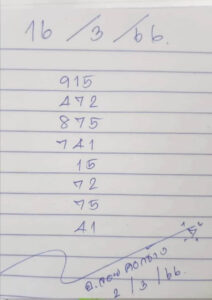 16/3/66.
915
472
875
741
15
72
75
41
2/3/66.